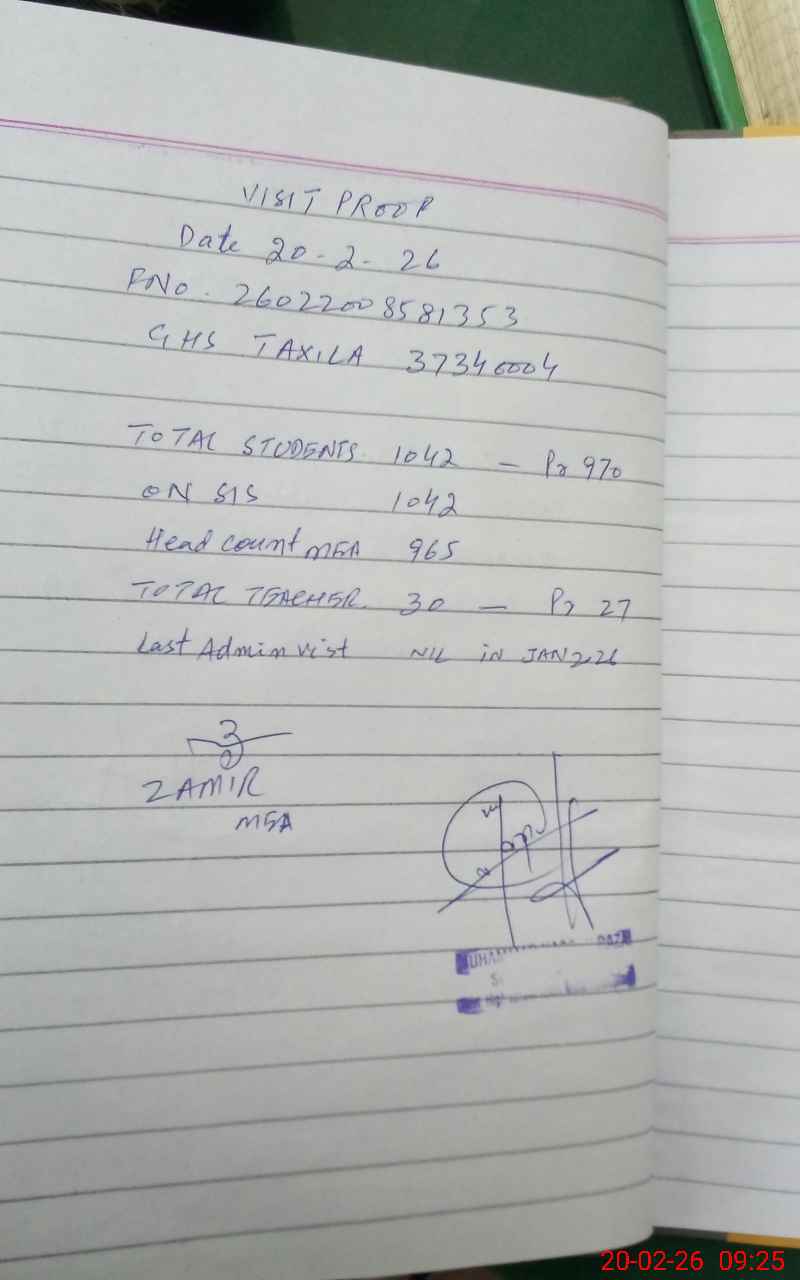 VISIT PROOF
Date 20-2-26
FNo. 26022008581353
GHS TAXILA 37340004
TOTAL STUDENTS 1042 - Pr 970
ON SIS 1042
Head count MEA 965
TOTAL TEACHER. 30 - Pr 27
Last Admin vist NIL in JAN 226
ZAMIR
MEA
20-02-26 09:25